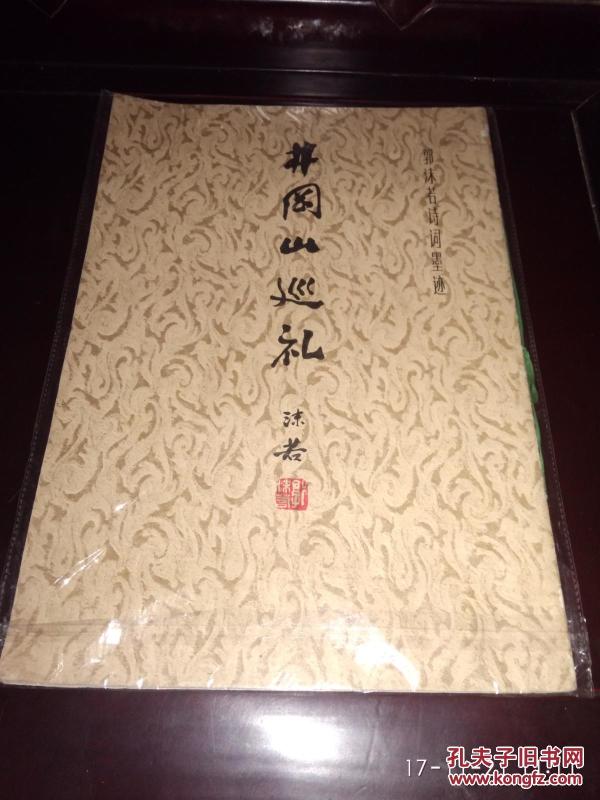 郭沫若诗词墨迹
井岡山巡礼
沫若
17-
孔夫子旧书网
www.kongfz.com